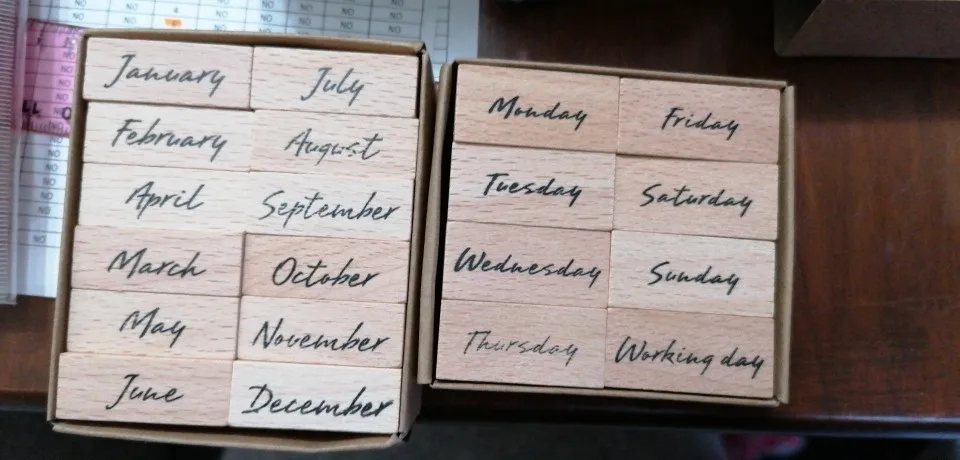 NO NO NO NO NO NO
NO 4 NO NO NO NO
NO 6 NO NO NO
NO
NO
LL
NO
NO
NO
NO
NO
NO
NO
January
February
April
March
May
June
July
August
September
October
November
December
Monday
Tuesday
Wednesday
Thursday
Friday
Saturday
Sunday
Working day